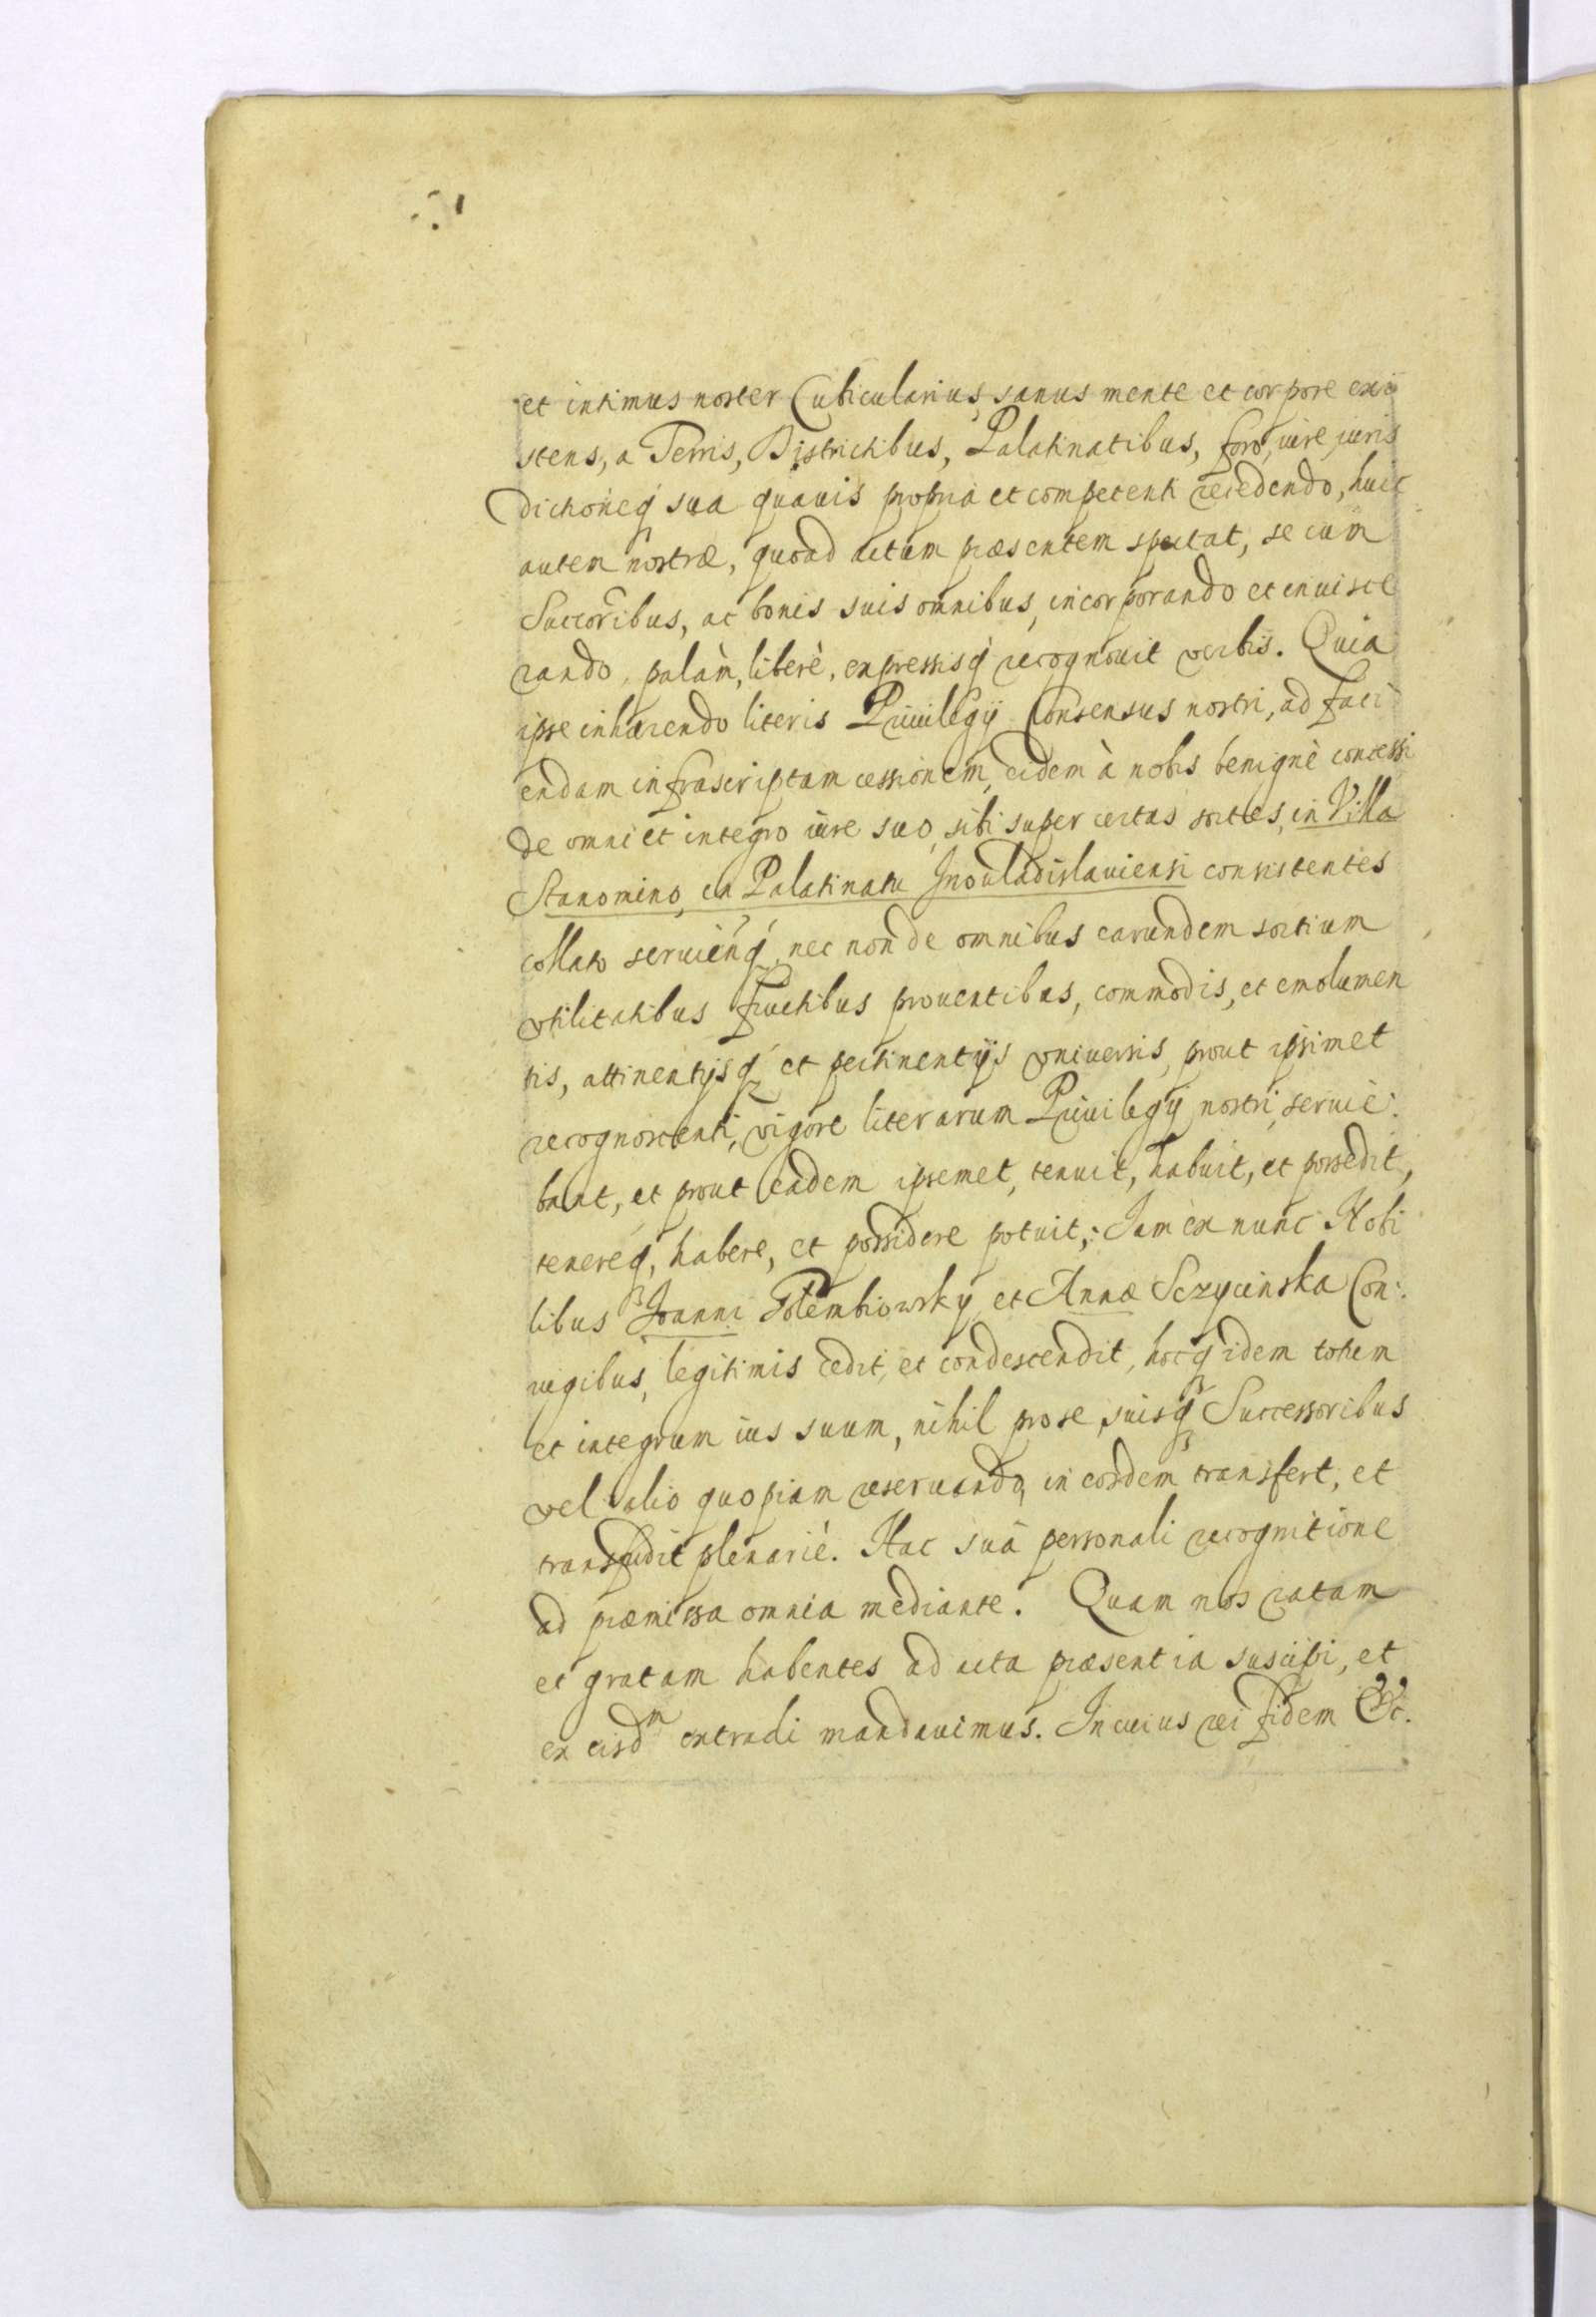 et intimus noster Cubicularius, sanus mente et corpore exi
stens, a Terris, Districtibus, Palatinatibus, foro, iure, iuris
dictioneq́ sua quauis propria et competenti recedendo, huic
autem nostræ, quoad actum præsentem spectat, se cum
Succoribus, ac bonis suis omnibus, incorporando et inuisce
rando, palàm, liberè, expressisq́ recognouit verbis. Quia
ipse inhærendo literis Priuilegij Consensus nostri, ad faci
endam infrascriptam cessionem, eidem à nobis benignè concessi
de omni et integro iure suo, sibi super certas sortes, in Villa
Stanomino, in Palatinatu Inouladislauiensi consistentes
collato seruienq́, nec non de omnibus earundem sortium
vtilitatibus fructibus prouentibus, commodis, et emolumen
tis, attinentijsq́ et pertinentijs vniuersis, prout ipsimet
recognoscenti, vigore literarum Priuilegij nostri, seruie:
bant, et prout eadem ipsemet, tenuit, habuit, et possedit,
tenereq́, habere, et possidere potuit; Iam ex nunc Nobi
libus Joanni Potembiowsky et Annæ Sczycinska Con:
iugibus, legitimis cedit, et condescendit, hocq́ idem totum
et integrum ius suum, nihil pro se, suisq́ Successoribus
vel alio quopiam reseruando, in eosdem transfert, et
transfudit plenariè. Hac suâ personali recognitione
ad præmissa omnia mediante. Quam nos ratam
et gratam habentes ad acta præsentia suscipi, et
ex eisdm extradi mandauimus. In cuius rei fidem &c.